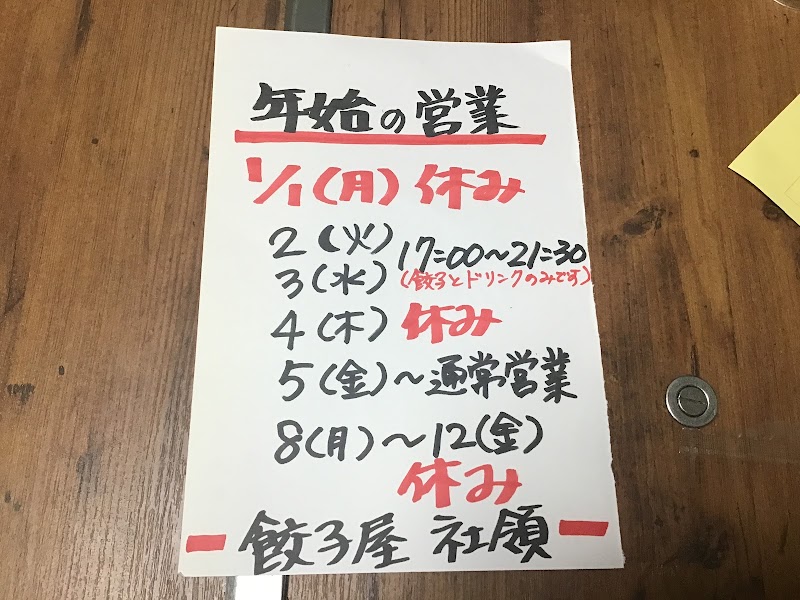 年始の営業
1/1(月) 休み
2(火) 17:00〜21:30
3(水) (餃子とドリンクのみです)
4(木) 休み
5(金)〜通常営業
8(月)〜12(金)
休み
ー餃子屋 社領ー